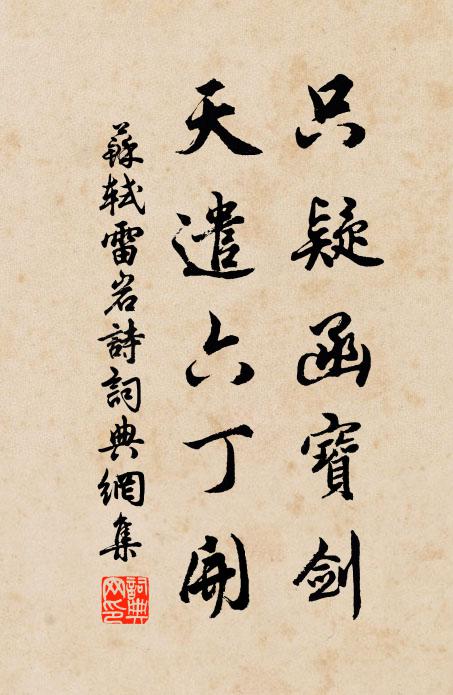 只疑函寶劍
天遣六丁開
蘇軾雷岩詩詞典網集
詞典网印